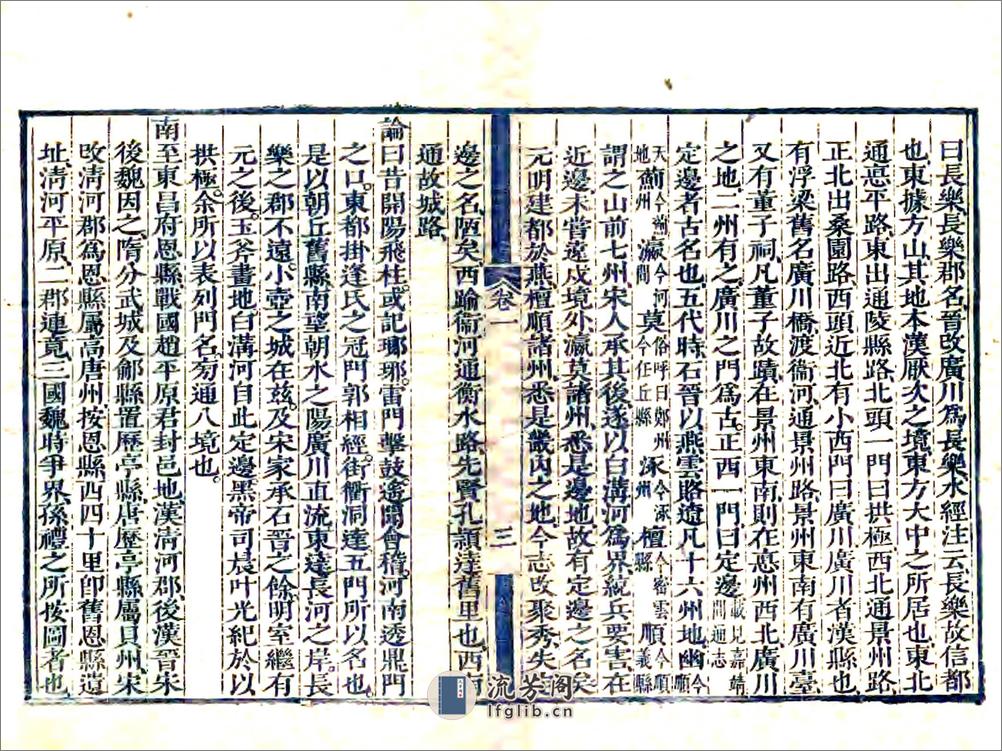 曰長樂長樂郡名晉改廣川爲長樂水經注云長樂故信都
也東據方山其地本漢厭次之境東方大中之所居也東北
通德平路東出通陵縣路北頭一門曰拱極西北通景州路
正北出桑園路西頭近北有小西門曰廣川廣川者漢縣也
有浮梁舊名廣川橋渡衞河通景州路景州東南有廣川臺
又有董子祠凡董子故蹟在景州東南則在德州西北廣川
之地二州有之廣川之門爲古正西一門曰定邊載見嘉靖間通志
定邊者古名也五代時石晉以燕雲賂遺凡十六州地幽今順
天薊今薊州瀛今河間莫今俗呼曰鄚州今任丘縣地涿今涿州檀今密雲縣順今順義縣
謂之山前七州宋人承其後遂以白溝河爲界統兵要害在
近邊未嘗遠戍境外瀛莫諸州悉是邊地故有定邊之名矣
元明建都於燕檀順諸州悉是畿内之地今志改聚秀失定
卷一
三
邊之名陋矣西踰衞河通衡水路先賢孔頴達舊里也西南
通故城路
論曰昔開陽飛柱或記瑯琊雷門擊鼓遙聞會稽河南透鼎門
之口東都掛逢氏之冠門郭相經街衢洞達五門所以名也
是以朝丘舊縣南望朝水之陽廣川直流東達長河之岸長
樂之郡不遠小壺之城在兹及宋家承石晉之餘明室繼有
元之後玉斧畫地曰溝河自此定邊黑帝司晨叶光紀於以
拱極余所以表列門名匆通八境也
南至東昌府恩縣戰國趙平原君封邑地漢淸河郡後漢晉宋
後魏因之隋分武城及鄃縣置歷亭縣唐歷亭縣屬貝州宋
改淸河郡爲恩縣屬高唐州按恩縣西四十里卽舊恩縣遺
址淸河平原二郡連竟三國魏時爭界孫禮之所按圖者也
流芳阁
lfglib.cn